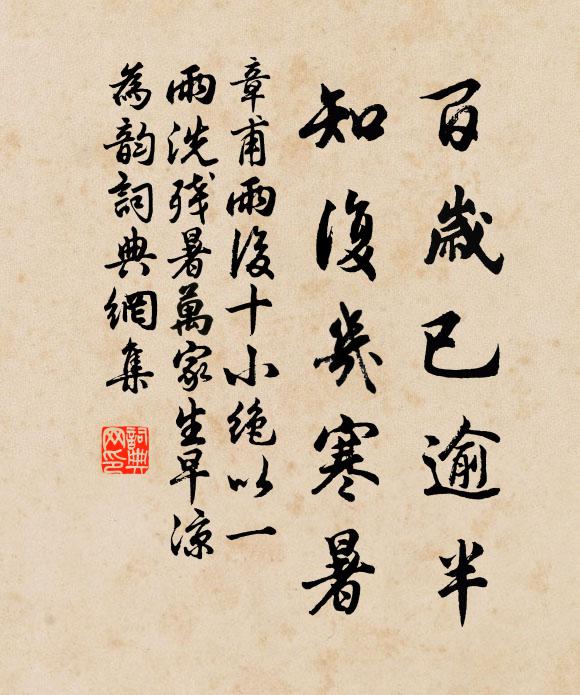 百歲已逾半
知復幾寒暑
章甫雨後十小絕以一
雨洗殘暑萬家生早涼
為韵詞典網集
詞典
网印